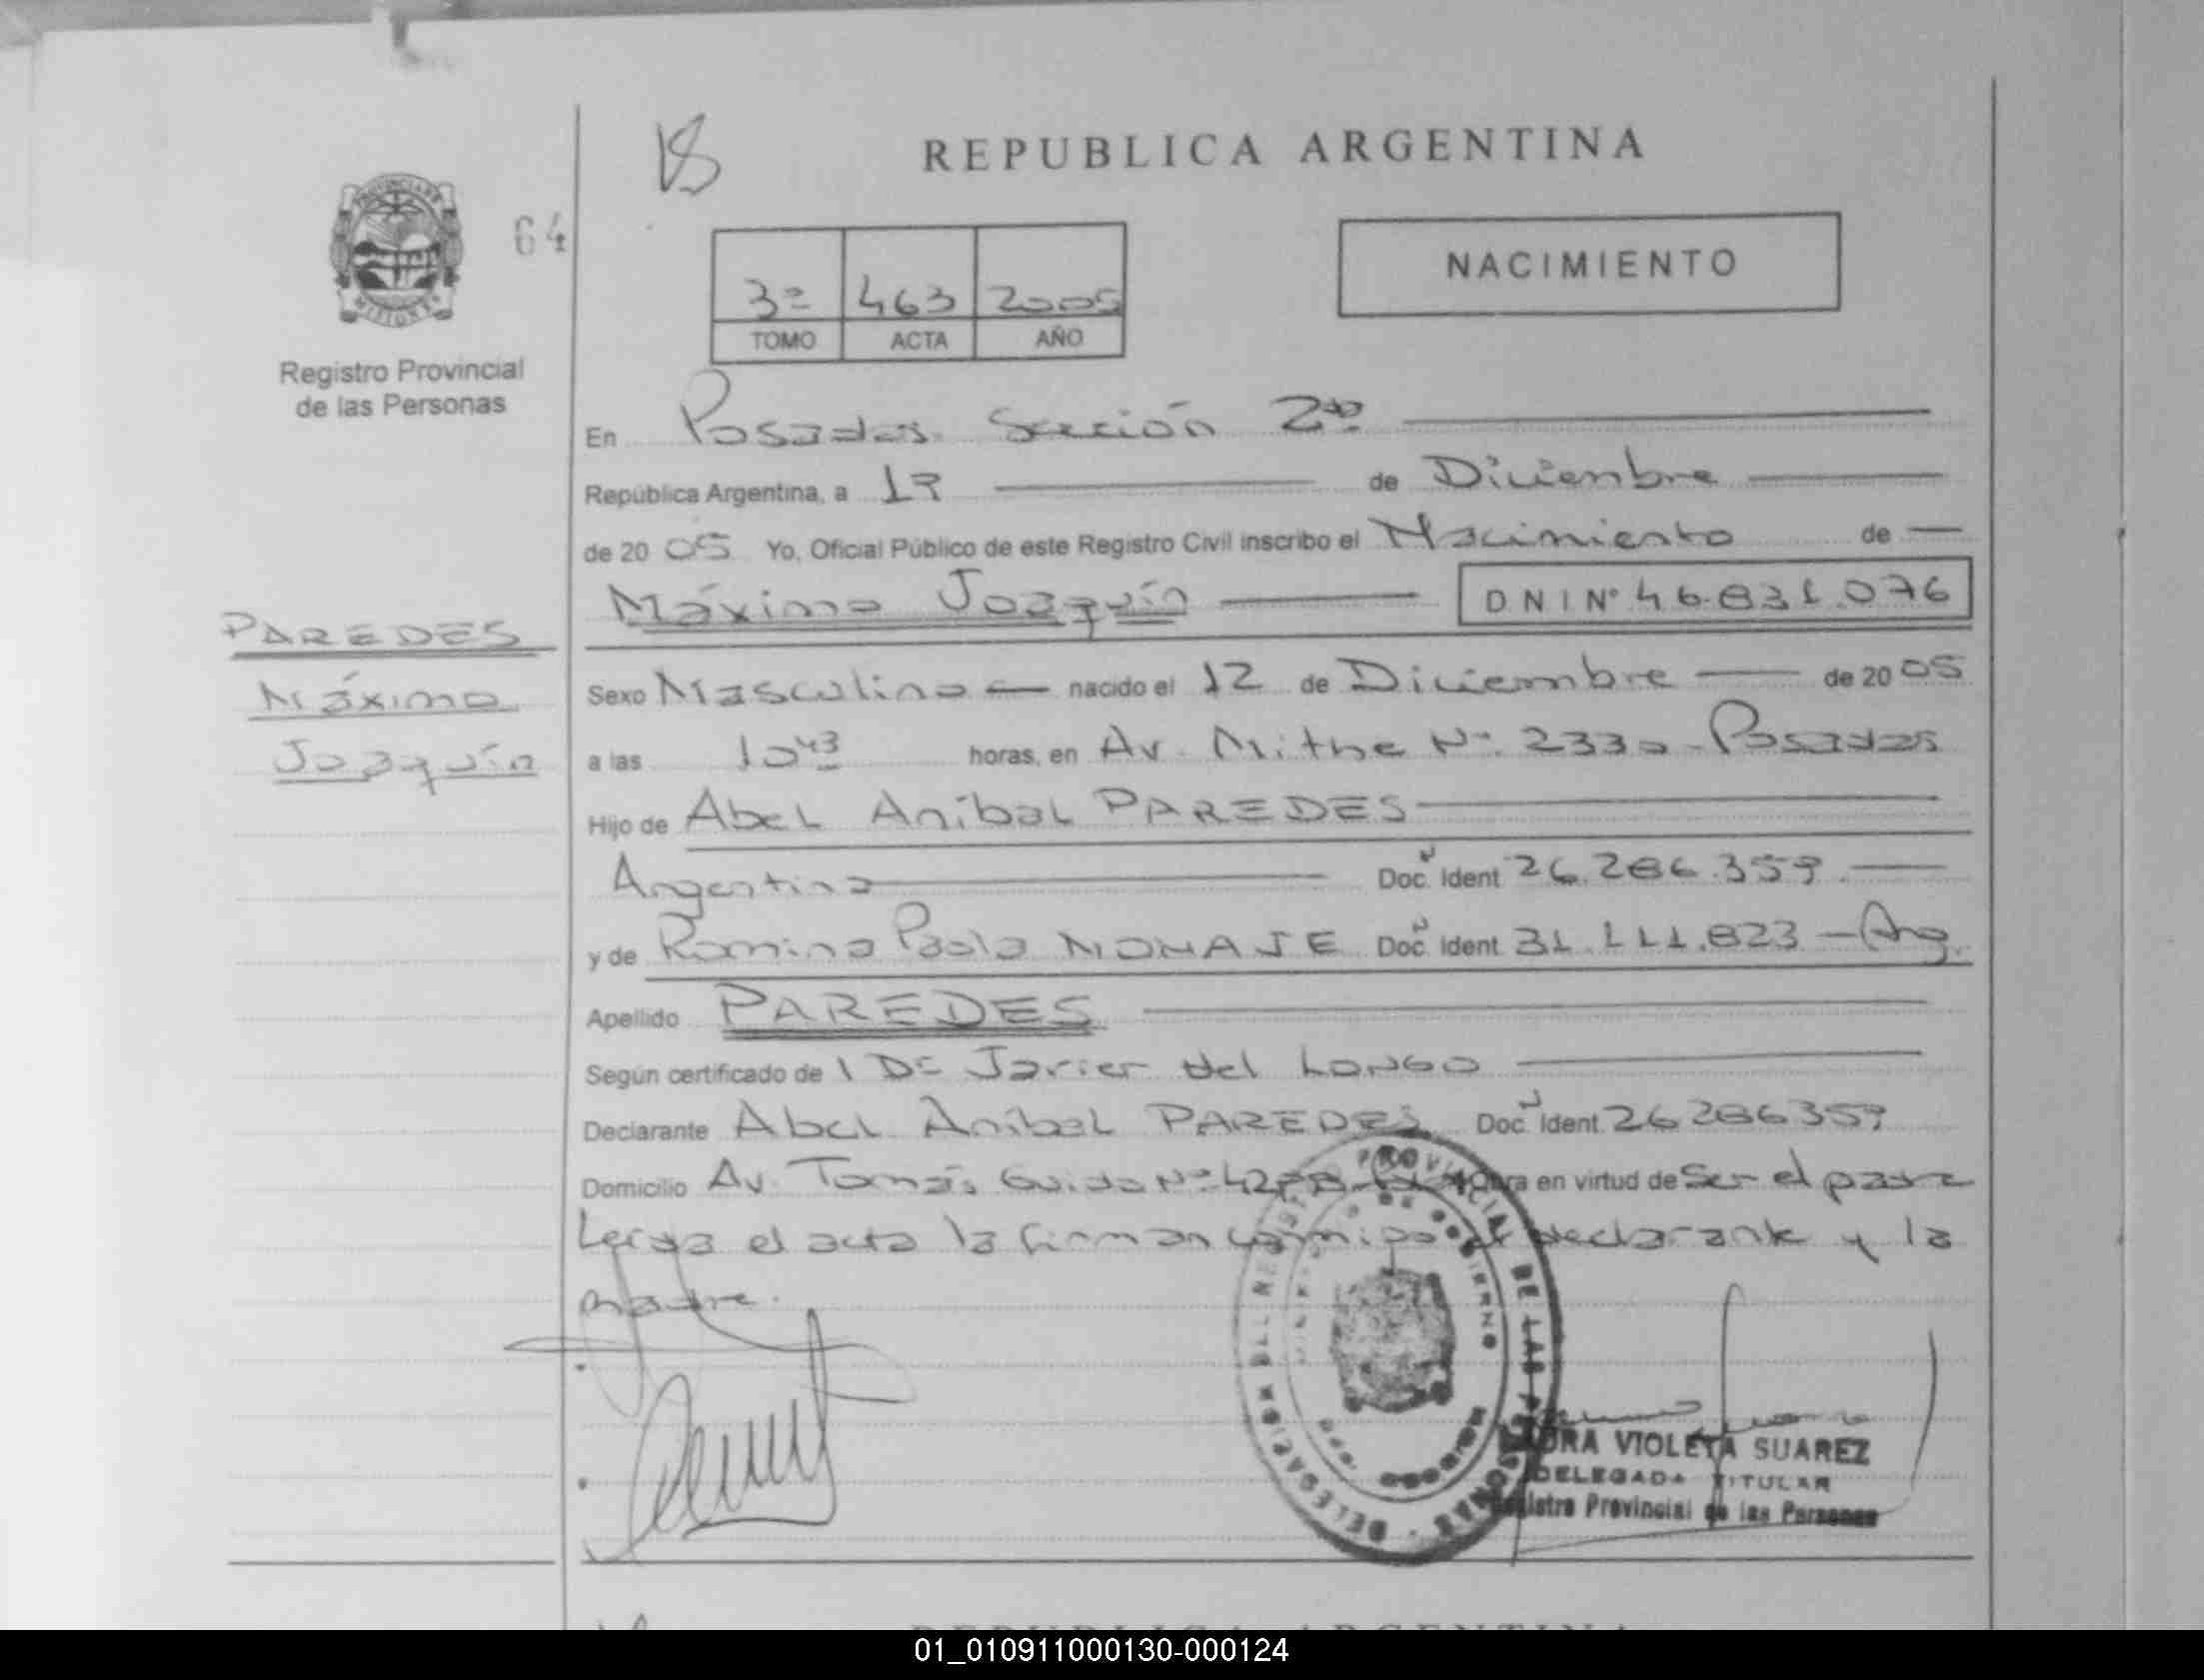 REPUBLICA ARGENTINA
64
NACIMIENTO
3º 463 2005
TOMO ACTA AÑO
Registro Provincial
de las Personas
En Posadas Sección 2da
República Argentina, a 19 de Diciembre
de 20 05 Yo, Oficial Público de este Registro Civil inscribo el Nacimiento de
Máximo Joaquín DNI Nº 46.831.076
PAREDES
Máximo
Joaquín
Sexo Masculino nacido el 12 de Diciembre de 20 05
a las 10 43 horas, en Av. Mitre Nº 2330 - Posadas
Hijo de Abel Aníbal PAREDES
Argentino Doc. Ident 26.286.359
y de Romina Paola Doc. Ident 31.111.823 - Arg.
Apellido PAREDES
Según certificado de Dr Javier del LONGO
Declarante Abel Aníbal PAREDES Doc. Ident. 26286359
Domicilio Av. Tomás Guido Nº en virtud de Ser el padre
Leída el acta la firman conmigo el declarante y la
madre.
DELEGACION DEL REGISTRO PROVINCIAL DE LAS PERSONAS
VIOLETA SUAREZ
DELEGADA TITULAR
Registro Provincial de las Personas
REPUBLICA ARGENTINA
01_010911000130-000124